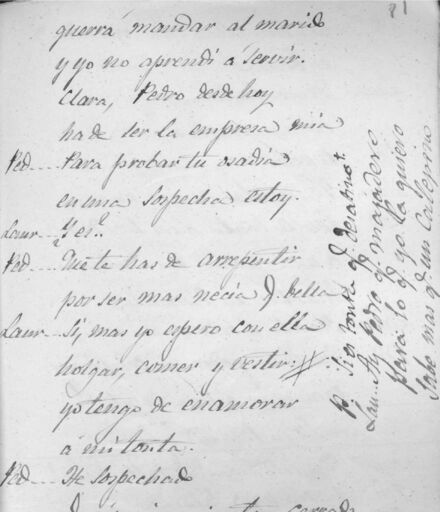 81
querrá mandar al marido
y yo no aprendí á servir.
Clara, Pedro desde hoy
ha de ser la empresa mia
Ped.... Para probar tu osadia
en una sospecha estoy.
Laur... Y es?
Ped... Que te has de arrepentir
por ser mas necia q. bella
Laur.. Si, mas yo espero con ella
holgar, comer y vestir. #
yo tengo de enamorar
á mi tonta.
Ped... He sospechado
cerrado
P. Si es tonta q. desatino!
Lau. Ay Pedro q. majadero
para lo q. yo la quiero
sabe mas q. un Calepino